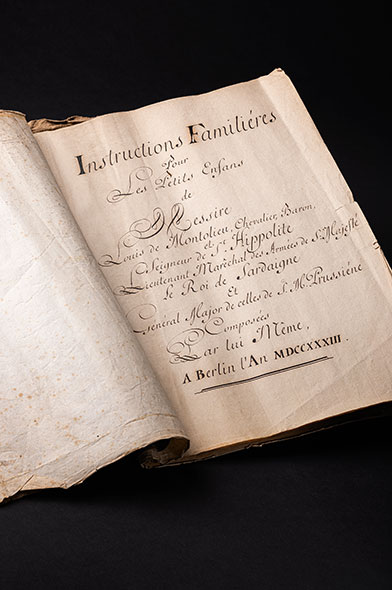 Instructions Familiéres
Pour
Les Petits Enfans
de
Messire
Louis de Montolieu, Chevalier, Baron,
et
Seigneur de St. Hippolite
Lieutenant Maréchal des Armées de Sa Majesté
le Roi de Sardaigne
Et
Général Major de celles de S. M. Prussiéne
Composées
Par lui Même,
A Berlin l'An MDCCXXXIII.